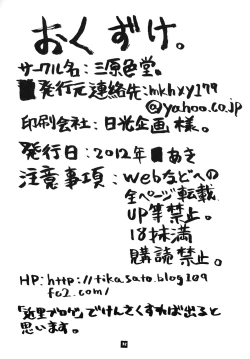 おくずけ。
サークル名：三原色堂。
発行元連絡先：mkhxy179
@yahoo.co.jp
印刷会社：日光企画様。
発行日：2012年 あき
注意事項：webなどへの
全ページ転載
UP等禁止。
18才未満
購読禁止。
HP：http://tikasato.blog109
fc2.com/
「近里ブログ」でけんさくすれば出ると
思います。